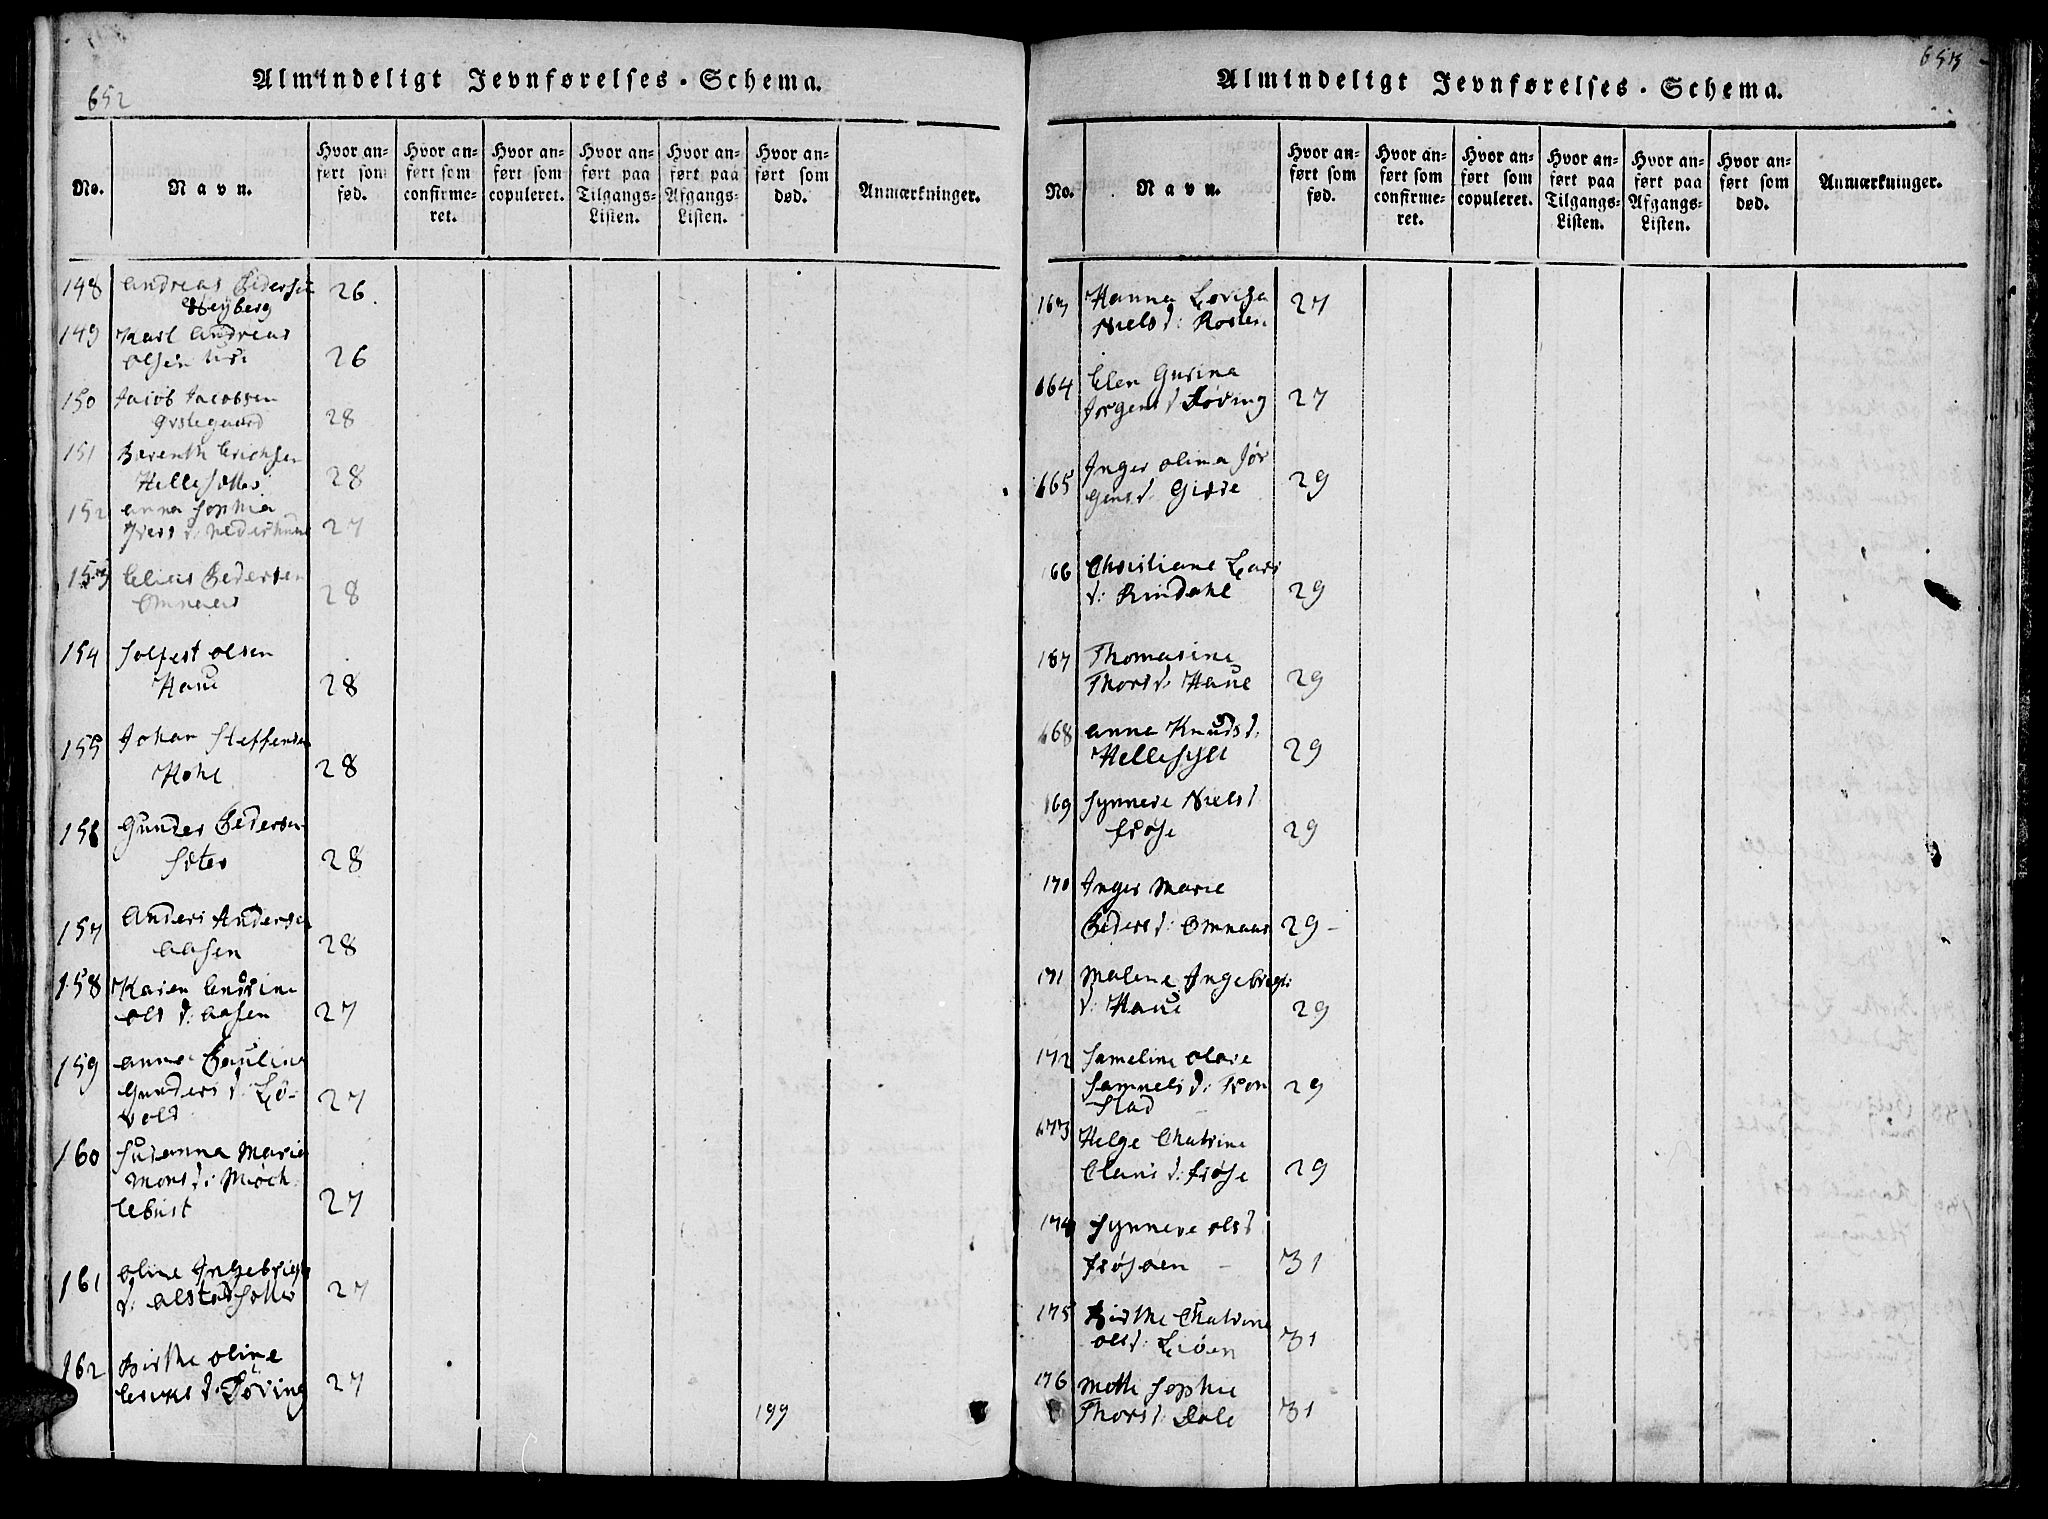 652
Almindeligt Jevnførelses-Schema.
No.
Navn.
Hvor an-
ført som
fød.
Hvor an-
ført som
confirme-
ret.
Hvor an-
ført som
copuleret.
Hvor an-
ført paa
Tilgangs-
Listen.
Hvor an-
ført paa
Afgangs-
Listen.
Hvor an-
ført som
død.
Anmærkninger.
148 Andreas Pedersen 26
149 Karl Andreas
Olsen 26
150 Jacob Jacobsen 28
151 Berenth Erichsen
28
152 Anna Sophia
Ivers d: 27
153 Elias Pedersen
28
154 Solfest Olsen
Haue 28
155 Johan Steffensen
Hole 28
156 Gunder Pedersen
Sæter 28
157 Anders Andersen
Aasen 28
158 Karen Andrine
Ols d: Aasen 27
159 Anna Paulina
Gunders d: Lø-
vold 27
160 Susanna Maria
Mons d: Møch
lebust 27
161 Oline Ingebrigt
d: 27
162 Birthe Oline
d: Døving 27
199
653
Almindeligt Jevnførelses-Schema.
No.
Navn.
Hvor an-
ført som
fød.
Hvor an-
ført som
confirme-
ret.
Hvor an-
ført som
copuleret.
Hvor an-
ført paa
Tilgangs-
Listen.
Hvor an-
ført paa
Afgangs-
Listen.
Hvor an-
ført som
død.
Anmærkninger.
163 Hanna Lovisa
Niels d: 27
164 Elen Gurina
Jørgens d Døving 27
165 Inger Olina Jør
gens d: 29
166 Christiane Lars
d: Rindahl 29
167 Thomasine
Thors d: Haue 29
168 Anne Knuds d:
Hellesylt 29
169 Synneve Niels d
Frøse 29
170 Inger Marie
Peders d: Omnaas 29
171 Malene Ingebrigt:
d: Haue 29
172 Sameline Olave
Samuels d: Kon
stad 29
173 Helge Chatrine
Claus d: Frøse 29
174 Synneve Ols d
Frøsøen 31
175 Birthe Chatrine
Ols d: Liøen 31
176 Mette Sophie
Thors d: Dale 31